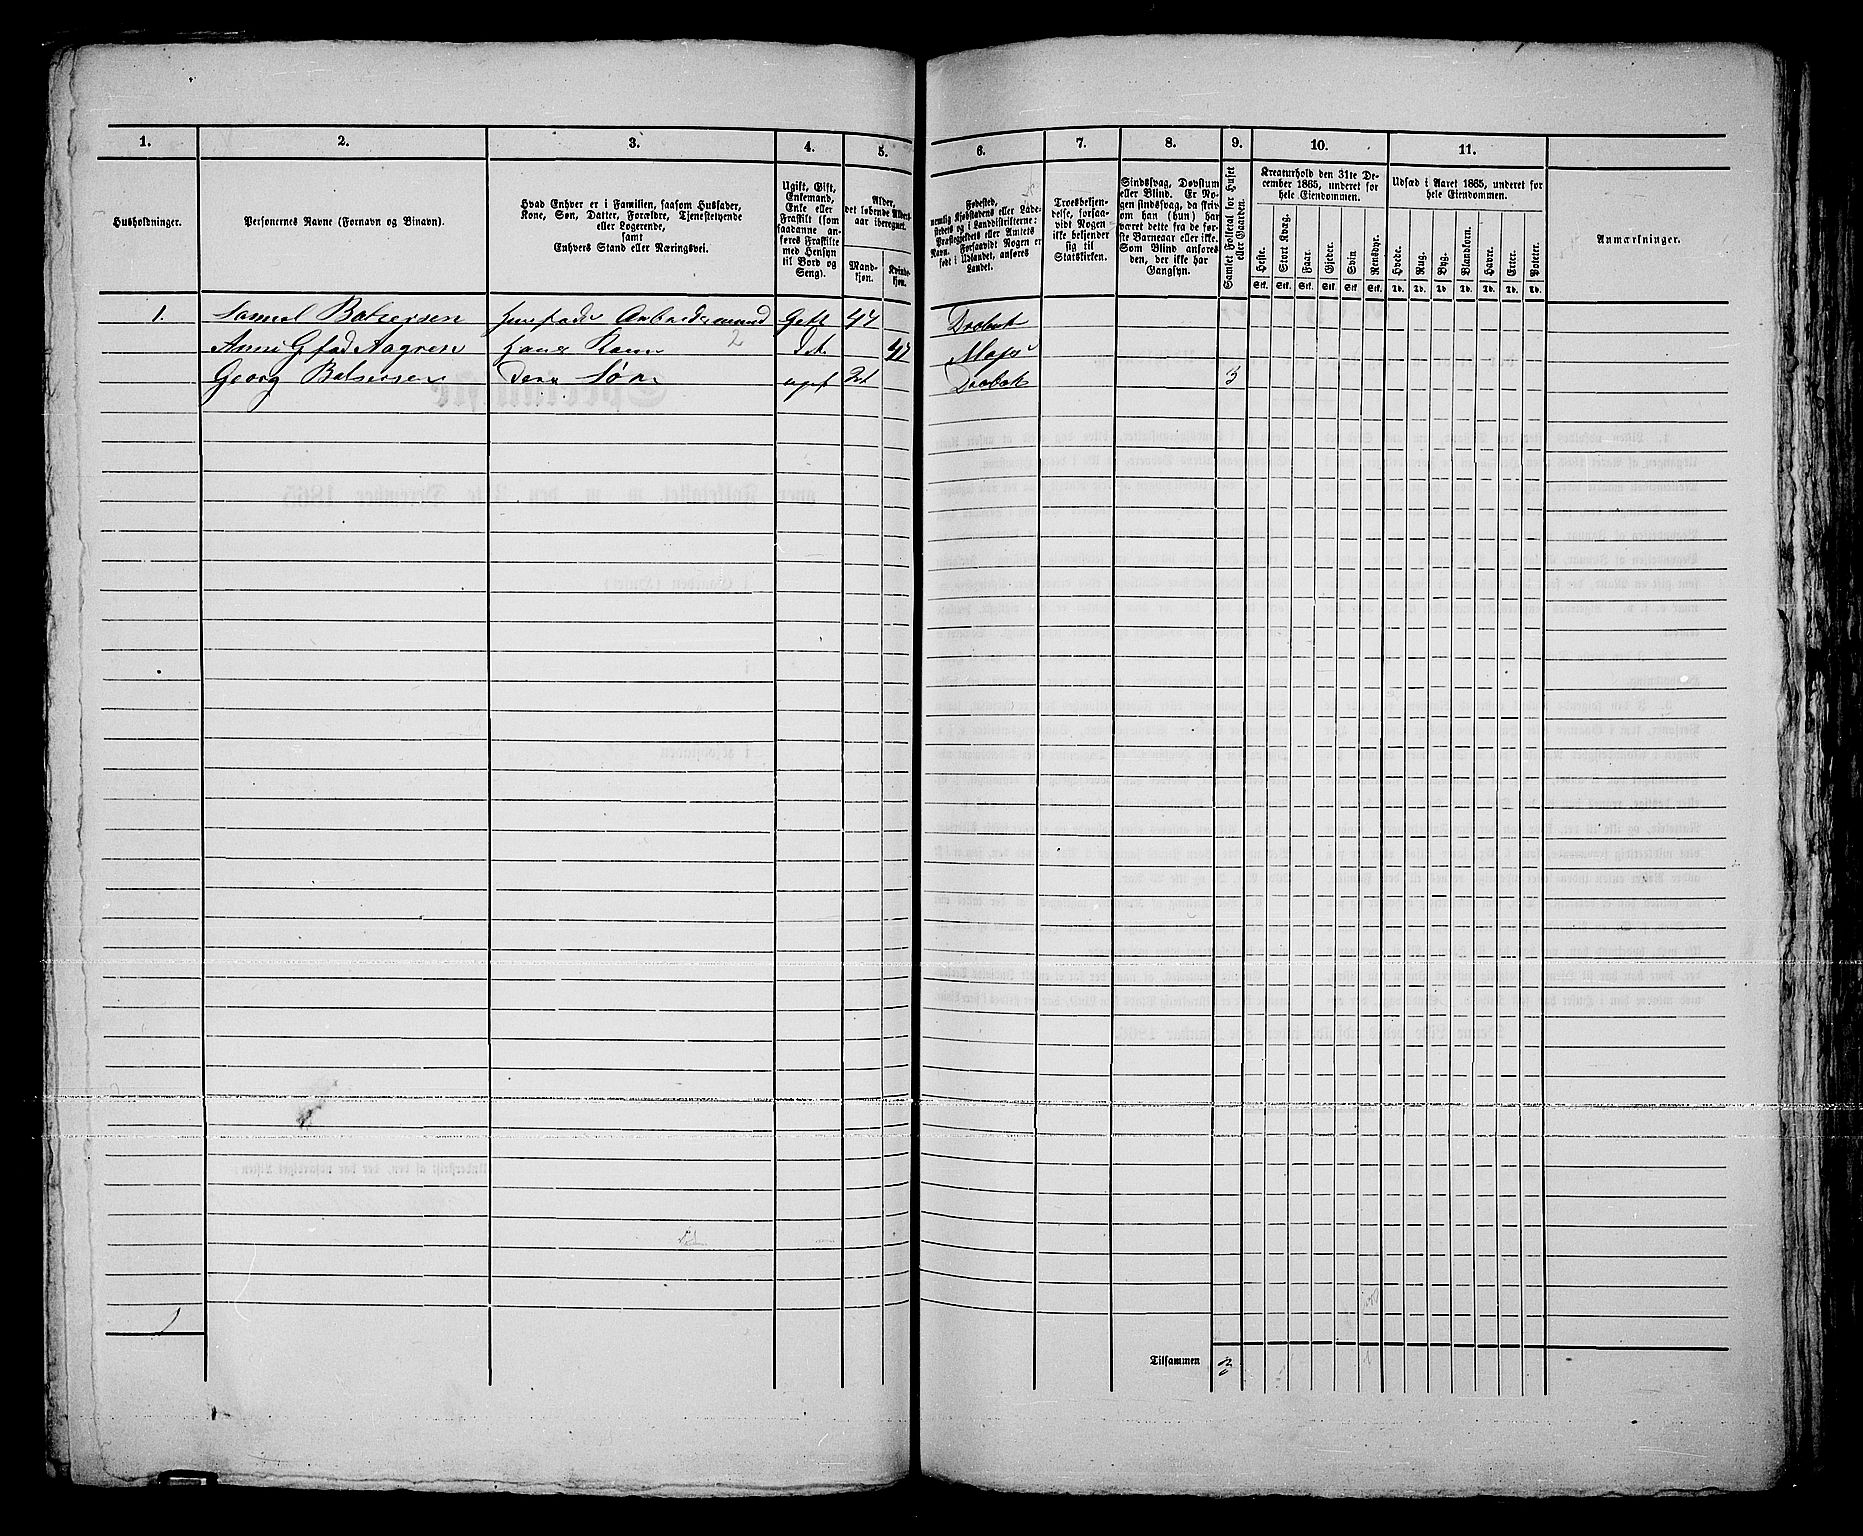 1. 2. 3. 4. 5. 6. 7. 8. 9. 10. 11.
Husholdninger.
Personernes Navne (Fornavn og Binavn).
Hvad Enhver er i Familien, saasom Husfader,
Kone, Søn, Datter, Forældre, Tjenestetyende
eller Logerende,
samt
Enhvers Stand eller Næringsvei.
Ugift, Gift,
Enkemand,
Enke eller
Fraskilt (som
saadanne an-
føres Fraskilte
med Hensyn
til Bord og
Seng).
Alder,
det løbende Alders-
aar iberegnet.
Mand-
kjøn.
Kvinde-
kjøn.
Fødested,
nemlig Kjøbstadens eller Lade-
stedets og i Landdistrikterne:
Præstegjeldets eller Amtets
Navn. Forsaavidt Nogen er
født i Udlandet, anføres
Landet.
Troesbekjen-
delse, forsaa-
vidt Nogen
ikke bekjender
sig til
Statskirken.
Sindssvag, Døvstum
eller Blind. Er No-
gen sindssvag, da skriv
om han (hun) har
været dette fra de før-
ste Barneaar eller ikke.
Som Blind anføres
den, der ikke har
Gangsyn.
Samlet Folketal for Huset
eller Gaarden.
Kreaturhold den 31te De-
cember 1865, underet for
hele Eiendommen.
Heste. Stort Kvæg. Faar. Gjeder. Svin. Rensdyr.
Stk. Stk. Stk. Stk. Stk. Stk.
Udsæd i Aaret 1865, underet for
hele Eiendommen.
Hvede. Rug. Byg. Blandkorn. Havre. Erter. Poteter.
Td. Td. Td. Td. Td. Td. Td.
Anmærkninger.
1. Samuel Balsersen Huusfader Arbeidsmand Gift 44 Drøbak
Kone 2 47
Georg Balsersen Deres Søn ugift 21 Drøbak 3
1
Tilsammen 3